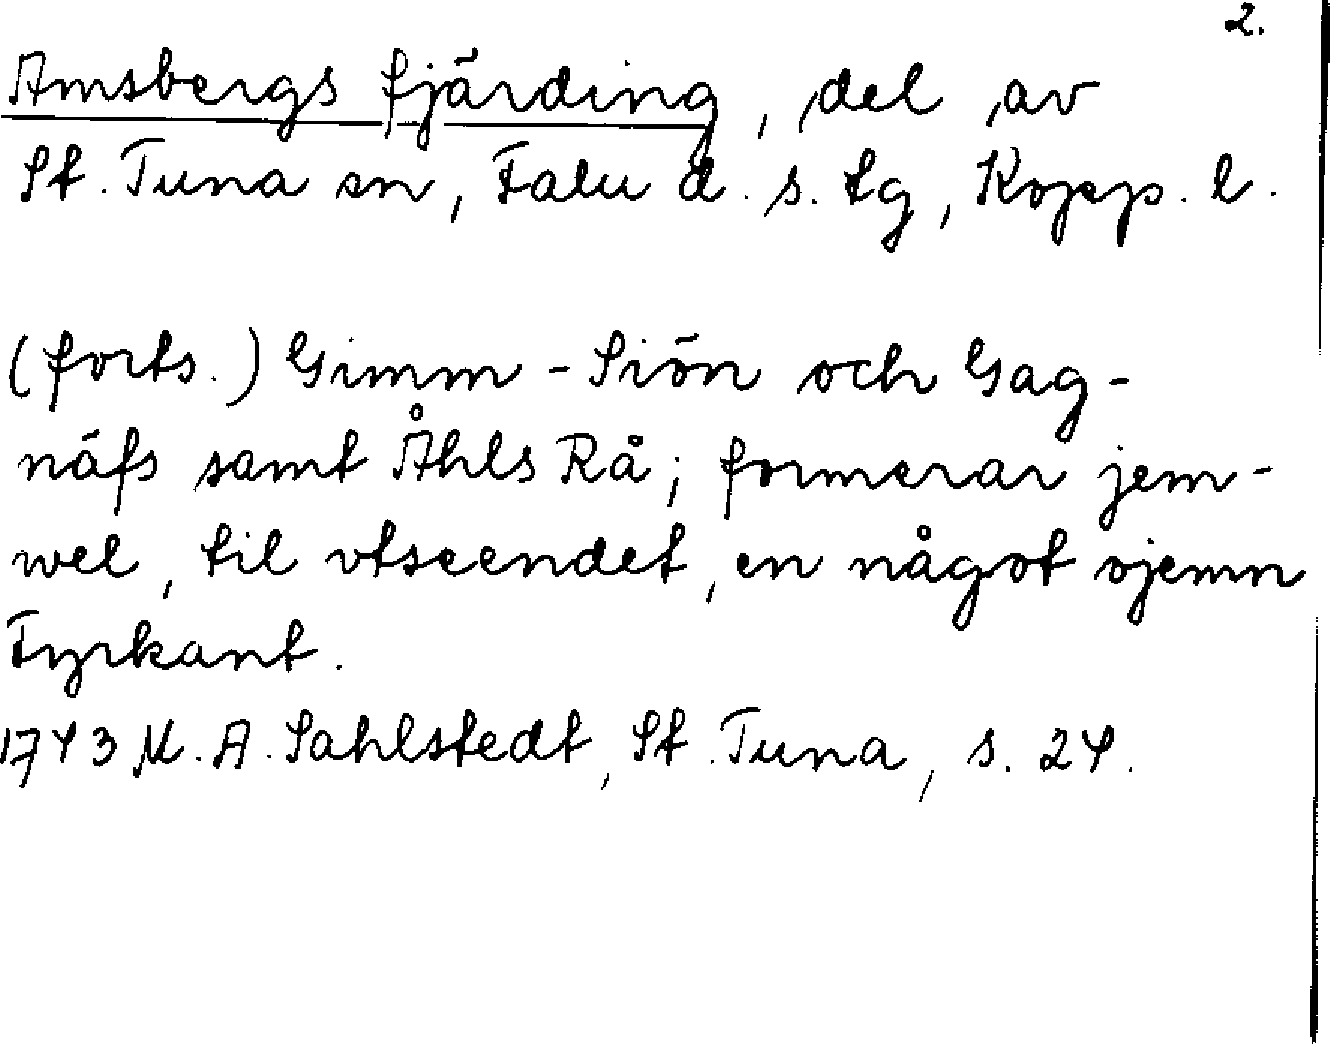 2.
Amsbergs fjärding, del av
St. Tuna sn, Falu d. s. tg, Kopp. l.
(forts.) Gimm-Siön och Gag-
näfs samt Åhls Rå; formerar jem-
wel, til vtseendet, en något ojemn
Fyrkant.
1743 M. A. Sahlstedt, St. Tuna, s. 24.